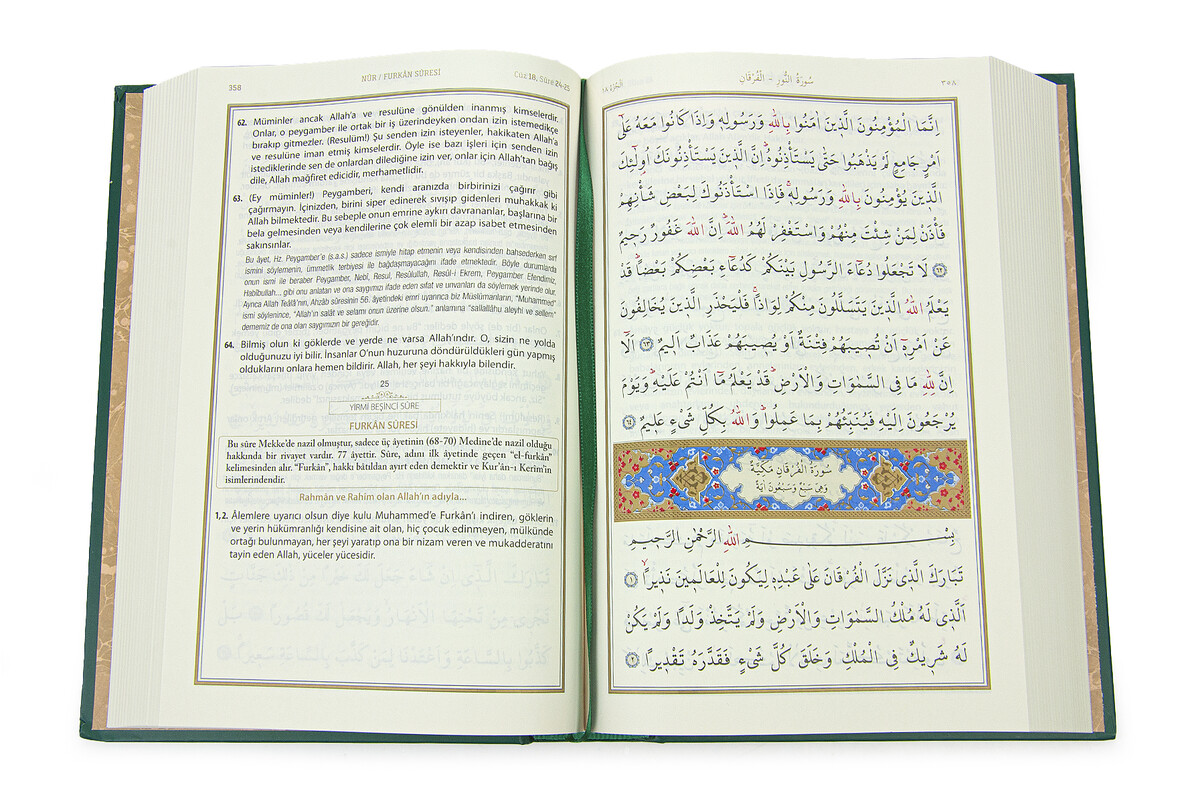 358
NÛR / FURKÂN SÛRESİ
Cüz 18, Sûre 24-25
62. Müminler ancak Allah'a ve resulüne gönülden inanmış kimselerdir.
Onlar, o peygamber ile ortak bir iş üzerindeyken ondan izin istemedikçe
bırakıp gitmezler. (Resulüm!) Şu senden izin isteyenler, hakikaten Allah'a
ve resulüne iman etmiş kimselerdir. Öyle ise bazı işleri için senden izin
istediklerinde sen de onlardan dilediğine izin ver, onlar için Allah'tan bağış
dile, Allah mağfiret edicidir, merhametlidir.
63. (Ey müminler!) Peygamberi, kendi aranızda birbirinizi çağırır gibi
çağırmayın. İçinizden, birini siper edinerek sıvışıp gidenleri muhakkak ki
Allah bilmektedir. Bu sebeple onun emrine aykırı davrananlar, başlarına bir
bela gelmesinden veya kendilerine çok elemli bir azap isabet etmesinden
sakınsınlar.
Bu âyet, Hz. Peygamber'e (s.a.s.) sadece ismiyle hitap etmenin veya kendisinden bahsederken sırf
ismini söylemenin, ümmetlik terbiyesi ile bağdaşmayacağını ifade etmektedir. Böyle durumlarda
onun ismi ile beraber Peygamber, Nebî, Resul, Resûlullah, Resûl-i Ekrem, Peygamber Efendimiz,
Habîbullah... gibi onu anlatan ve ona saygımızı ifade eden sıfat ve unvanları da söylemek yerinde olur.
Ayrıca Allah Teâlâ'nın, Ahzâb sûresinin 56. âyetindeki emri uyarınca biz Müslümanların, "Muhammed"
ismi söylenince, "Allah'ın salât ve selamı onun üzerine olsun." anlamına "sallallâhu aleyhi ve sellem"
dememiz de ona olan saygımızın bir gereğidir.
64. Bilmiş olun ki göklerde ve yerde ne varsa Allah'ındır. O, sizin ne yolda
olduğunuzu iyi bilir. İnsanlar O'nun huzuruna döndürüldükleri gün yapmış
olduklarını onlara hemen bildirir. Allah, her şeyi hakkıyla bilendir.
25
YİRMİ BEŞİNCİ SÛRE
FURKÂN SÛRESİ
Bu sûre Mekke'de nazil olmuştur, sadece üç âyetinin (68-70) Medine'de nazil olduğu
hakkında bir rivayet vardır. 77 âyettir. Sûre, adını ilk âyetinde geçen "el-furkân"
kelimesinden alır. "Furkân", hakkı bâtıldan ayırt eden demektir ve Kur'ân-ı Kerîm'in
isimlerindendir.
Rahmân ve Rahîm olan Allah'ın adıyla...
1,2. Âlemlere uyarıcı olsun diye kulu Muhammed'e Furkân'ı indiren, göklerin
ve yerin hükümranlığı kendisine ait olan, hiç çocuk edinmeyen, mülkünde
ortağı bulunmayan, her şeyi yaratıp ona bir nizam veren ve mukadderatını
tayin eden Allah, yüceler yücesidir.
٣٥٨
سُورَةُ النُّورِ - الْفُرْقَانِ
اَلْجُزْءُ ١٨
اِنَّمَا الْمُؤْمِنُونَ الَّذٖينَ اٰمَنُوا بِاللّٰهِ وَرَسُولِهٖ وَاِذَا كَانُوا مَعَهُ عَلٰٓى
اَمْرٍ جَامِعٍ لَمْ يَذْهَبُوا حَتّٰى يَسْتَأْذِنُوهُؕ اِنَّ الَّذٖينَ يَسْتَأْذِنُونَكَ اُو۬لٰٓئِكَ
الَّذٖينَ يُؤْمِنُونَ بِاللّٰهِ وَرَسُولِهٖۚ فَاِذَا اسْتَأْذَنُوكَ لِبَعْضِ شَأْنِهِمْ
فَأْذَنْ لِمَنْ شِئْتَ مِنْهُمْ وَاسْتَغْفِرْ لَهُمُ اللّٰهَؕ اِنَّ اللّٰهَ غَفُورٌ رَحٖيمٌ
﴿٦٢﴾ لَا تَجْعَلُوا دُعَٓاءَ الرَّسُولِ بَيْنَكُمْ كَدُعَٓاءِ بَعْضِكُمْ بَعْضًاؕ قَدْ
يَعْلَمُ اللّٰهُ الَّذٖينَ يَتَسَلَّلُونَ مِنْكُمْ لِوَاذًاۚ فَلْيَحْذَرِ الَّذٖينَ يُخَالِفُونَ
عَنْ اَمْرِهٖٓ اَنْ تُصٖيبَهُمْ فِتْنَةٌ اَوْ يُصٖيبَهُمْ عَذَابٌ اَلٖيمٌ ﴿٦٣﴾ اَلَٓا
اِنَّ لِلّٰهِ مَا فِي السَّمٰوَاتِ وَالْاَرْضِؕ قَدْ يَعْلَمُ مَٓا اَنْتُمْ عَلَيْهِؕ وَيَوْمَ
يُرْجَعُونَ اِلَيْهِ فَيُنَبِّئُهُمْ بِمَا عَمِلُواؕ وَاللّٰهُ بِكُلِّ شَيْءٍ عَلٖيمٌ ﴿٦٤﴾
سُورَةُ الْفُرْقَانِ مَكِّيَّةٌ
وَهِيَ سَبْعٌ وَسَبْعُونَ اٰيَةً
بِسْمِ اللّٰهِ الرَّحْمٰنِ الرَّحٖيمِ
تَبَارَكَ الَّذٖي نَزَّلَ الْفُرْقَانَ عَلٰى عَبْدِهٖ لِيَكُونَ لِلْعَالَمٖينَ نَذٖيرًاۙ ﴿١﴾
اَلَّذٖي لَهُ مُلْكُ السَّمٰوَاتِ وَالْاَرْضِ وَلَمْ يَتَّخِذْ وَلَدًا وَلَمْ يَكُنْ
لَهُ شَرٖيكٌ فِي الْمُلْكِ وَخَلَقَ كُلَّ شَيْءٍ فَقَدَّرَهُ تَقْدٖيرًا ﴿٢﴾